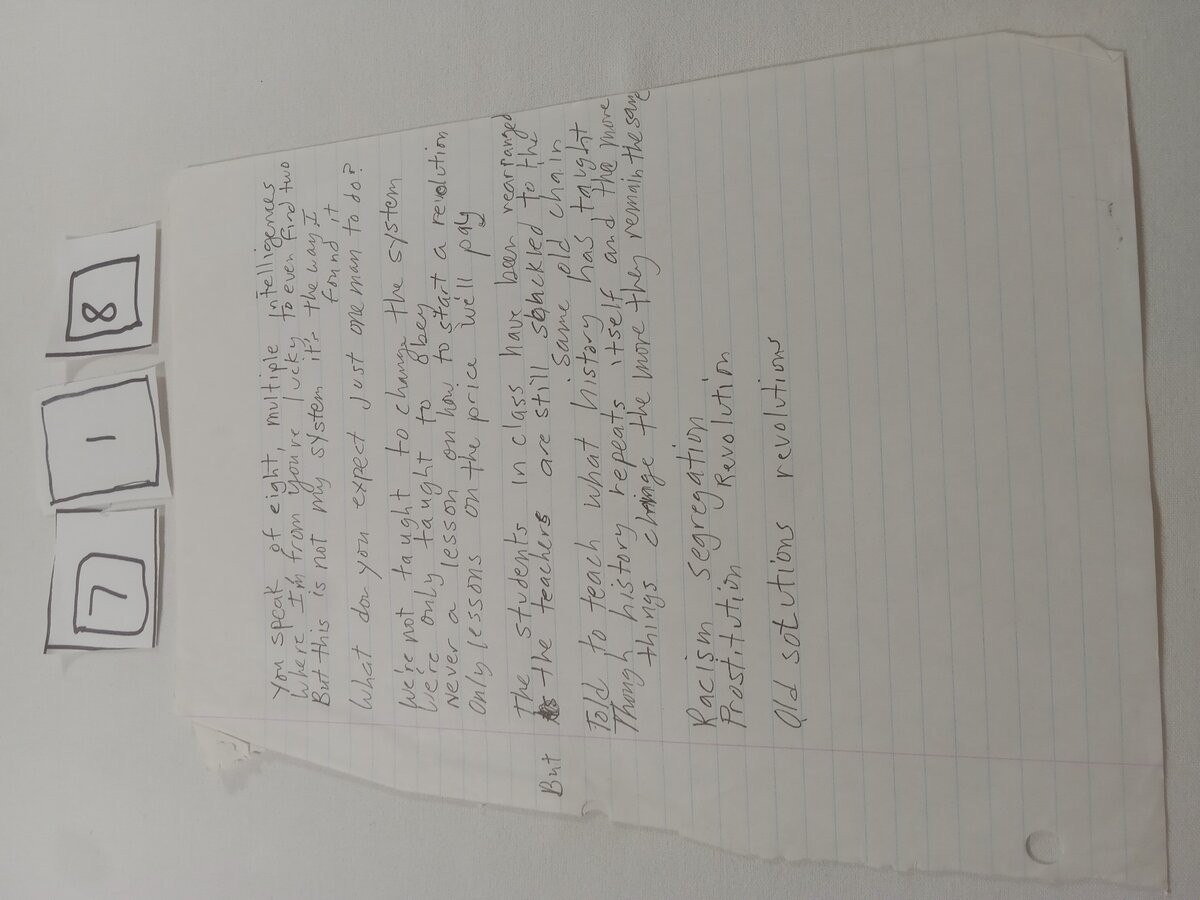 7 1 8
You speak of eight, multiple intelligences
Where I'm from you're lucky to even find two
But this is not my system it's the way I
found it
What don you expect Just one man to do?
We're not taught to change the system
We're only taught to obey
Never a lesson on how to start a revolution
Only lessons on the price we'll pay
The students in class have been rearranged
But the teachers are still shackled to the
same old chain
Told to teach what history has taught
Though history repeats itself and the more
things change the more they remain the same
Racism segregation
Prostitution Revolution
Old solutions revolutions